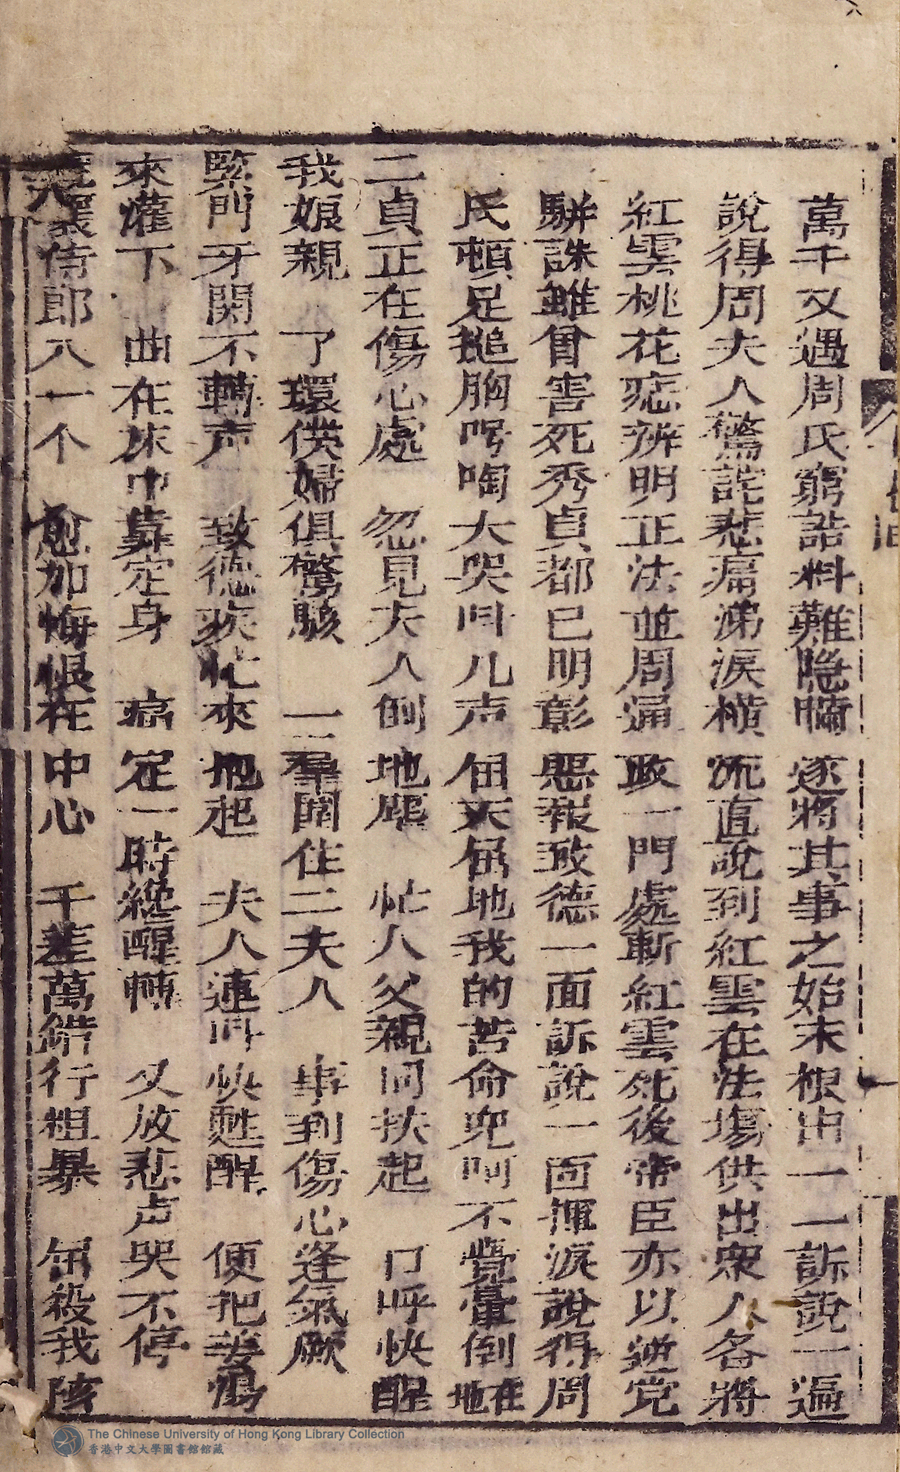 萬千又遇周氏窮詰料難隐瞞逐將其事之始末根由一一訴說一遍
說得周夫人驚詫悲痛涕淚橫流直說到紅雲在法塲供出衆人各將
紅雲桃花惩辨明正法並周通政一門處斬紅雲死後帝臣亦以逆党
駢誅雖曾害死秀貞都已明彰惡報致德一面訴說一面揮淚說得周
氏頓足搥胸呺啕大哭叫几声屈天屈地我的苦命兒呵不覺暈倒在地
二貞正在傷心處 忽見夫人倒地塵 忙入父親同扶起 口呼快醒
我娘親 了環僕婦俱驚駭 一羣圍住二夫人 事到傷心逢氣厥
緊門牙関不轉声 致德疾忙來抱起 夫人連叫快甦醒 便把姜湯
來灌下 曲在床巾靠定身 痛定一時纔醒轉 又放悲声哭不停
侍郎八一个 愈加悔恨在中心 千差萬錯行粗暴 屈殺我
The Chinese University of Hong Kong Library Collection
香港中文大學圖書館館藏